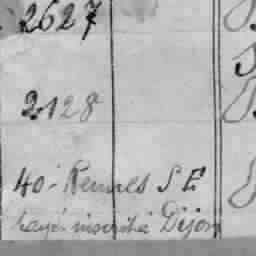 2627
2128
40 - Rennes S E
Rayé inscrit à Dijon